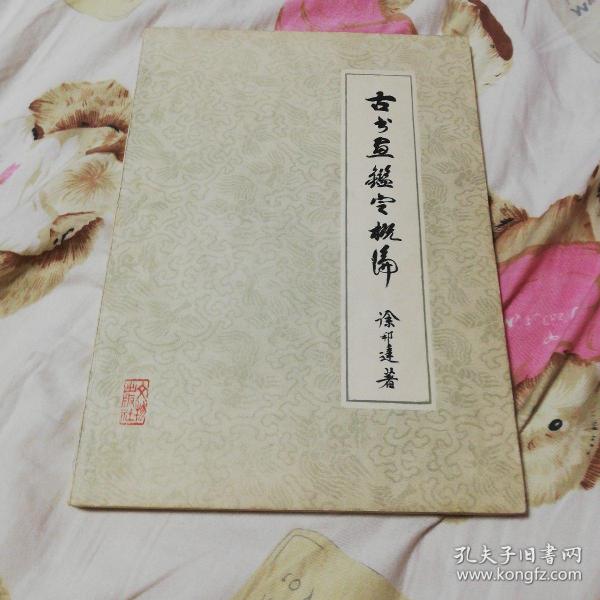 古书画鑑定概论
徐邦达著
文物
出版社
孔夫子旧書网
www.kongfz.com